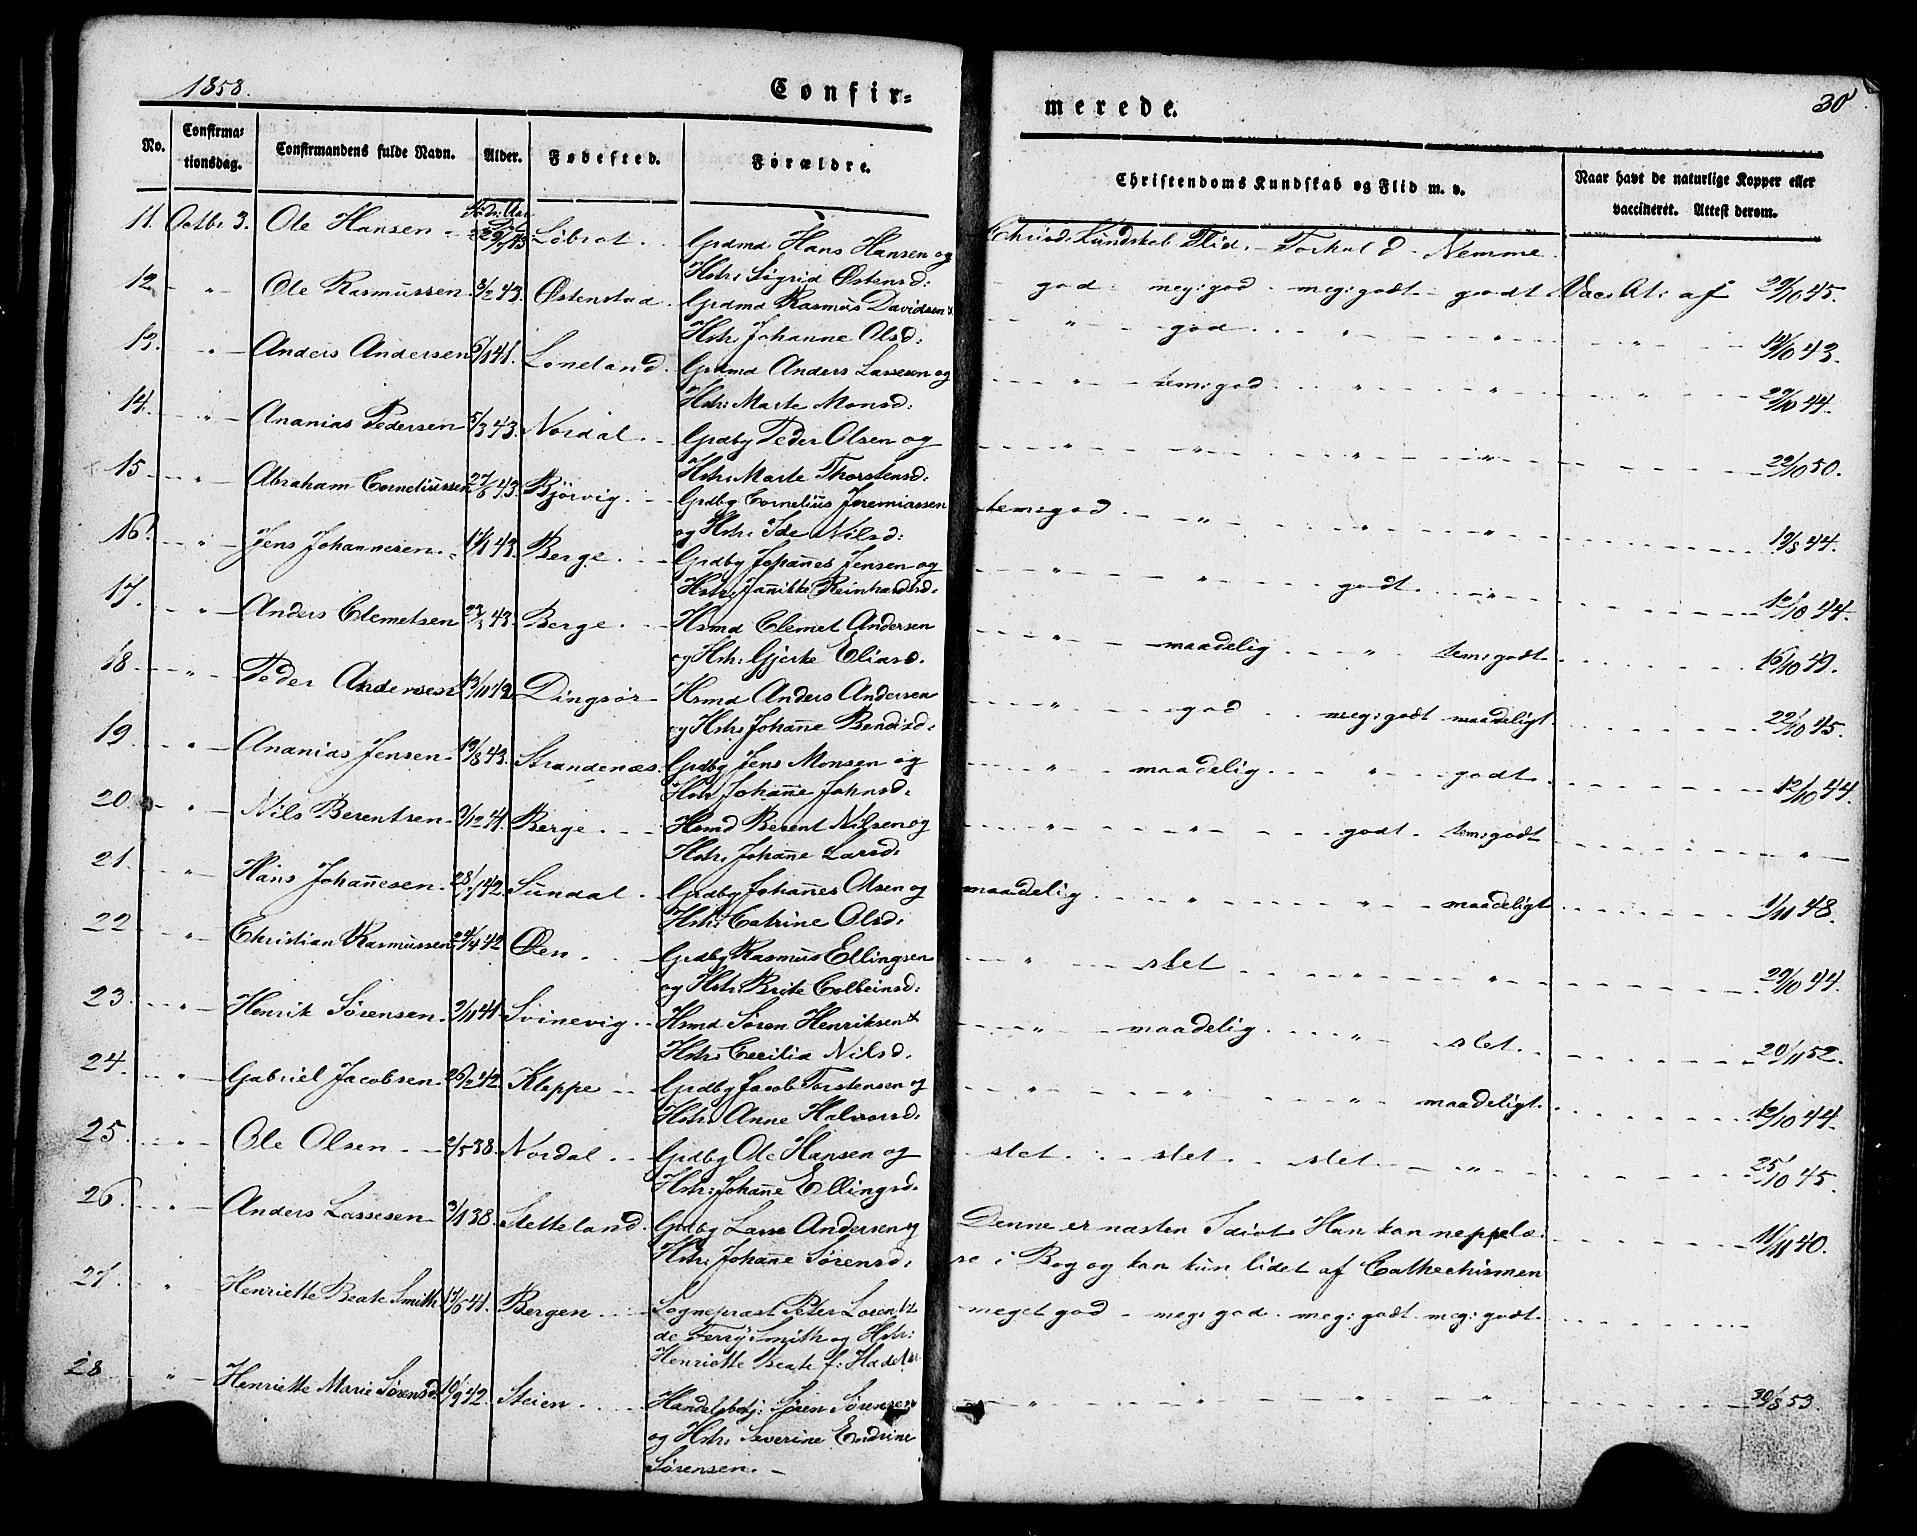 1858.
Confir=
merede.
30
No.
Confirma=
tionsdag.
Confirmandens fulde Navn.
Alder.
Fødested.
Forældre.
Christendoms Kundskab og Flid m. v.
Naar havt de naturlige Kopper eller
vaccineret. Attest derom.
11. Octbr 3. Ole Hansen Løbrot. Grdmd Hans Hansen og
Hstr: Sigrid Østensd:
Christd: Kundskab Flid. Forhold Nemme.
god meg: god meg: godt godt Vac: At: af 29/10 45.
12 " Ole Rasmussen 3/2 43. Østenstad. Grdmd Rasmus Davidsen &
Hstr: Johanne Olsd:
" god " " " 18/10 43.
13. " Anders Andersen 5/1 41. Loneland. Grdmd Anders Lassesen og
Hstr: Marte Monsd:
" tem: god " " " 29/10 44.
14. " Ananias Pedersen 5/3 43. Nordal. Grdbg Peder Olsen og
Hstr: Marte Thorstensd:
" " " " 22/10 50.
15 " Abraham Corneliussen 27/6 43. Bjørvig. Grdbg Cornelius Jeremiassen
og Hstr: Ide Nilsd:
tem: god " " " 19/8 44.
16. " Jens Johannesen. 11/1 43. Berge Grdbg Johañes Jensen og
Hstr: Janikke Reinhardtsd:
" " godt " 12/10 44.
17. " Anders Clemetsen 23/3 43. Berge Hsmd Clemet Andersen
og Hstr: Gjerke Eliasd.
" maadelig " tem: godt 16/10 49.
18 " Peder Andersen 13/11 42. Dingsør Hsmd Anders Andersen
og Hstr: Johañe Bendixd:
" god meg: godt maadeligt 22/10 45.
19 " Ananias Jensen 19/8 43. Strandenæs. Grdbg Jens Monsen og
Hstr Johañe Johnsd:
" maadelig " godt 12/10 44.
20 " Nils Berentsen 9/12 41. Berge Hsmd Berent Nilsen og
Hstr: Johañe Larsd:
" " godt tem: godt "
21. " Hans Johañesen. 28/1 42. Sundal. Grdbg Johañes Olsen og
Hstr: Catrine Olsd:
maadelig " " maadeligt 1/11 48.
22 " Christian Rasmussen 24/4 42 Øen. Grdbg Rasmus Ellingsen
og Hstr: Brite Colbeinsd:
" slet " " 29/10 44.
23 " Henrik Sørensen. 2/11 41. Svinevig. Hsmd Søren Henriksen &
Hstr: Cecilia Nilsd.
" maadelig " slet. 20/11 52.
24. " Gabriel Jacobsen 26/2 42. Kleppe Grdbg Jacob Torstensen og
Hstr: Anne Halvorsd:
" " " maadeligt. 12/10 44.
25 " Ole Olsen 2/5 38. Nordal Grdbg Ole Hansen og
Hstr: Johañe Ellingsd.
slet slet slet " 25/10 45.
26. " Anders Lassesen 3/1 38. Stetteland. Grdbg Lasse Andersen og
Hstr: Johañe Sørensd:
Denne er næsten Idiot. Han kan neppe læ:
se i Bog og kan kun lidet af Cathechismen
11/11 40.
27. " Henriette Beate Smith 17/5 41. Bergen Sognepræst Peter Lorentz
de Ferry Smith og Hstr:
Henriette Beate f:
meget god meg: god. meg: godt. meg: godt.
28 " Henriette Marie Sørensd: 10/9 42. Steien Handelsbetj: Søren Sørensen
og Hstr: Severine Endrine
Sørensen.
" " " " 30/8 53.